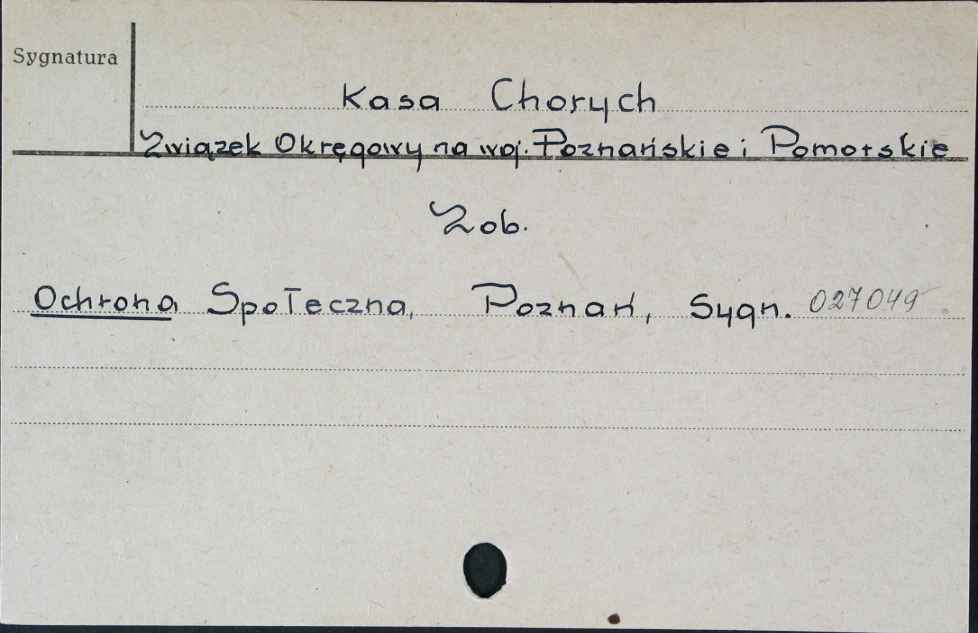 Sygnatura
Kasa Chorych
Związek Okręgowy na woj. Poznańskie i Pomorskie
Zob.
Ochrona Społeczna, Poznań, Sygn. 027049